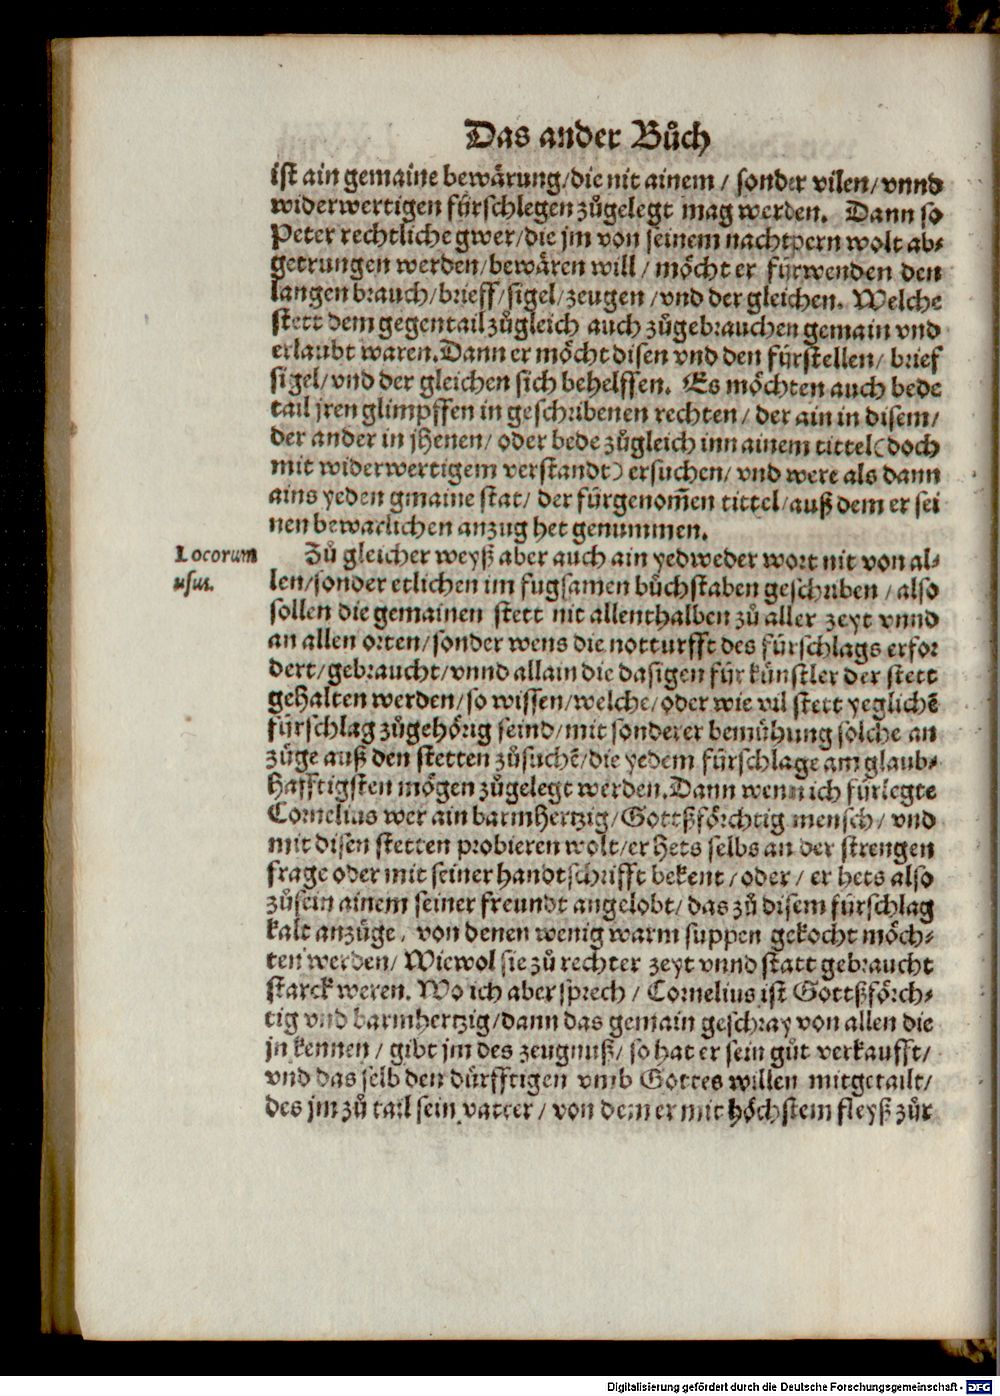 Das ander Bůch
ist ain gemaine bewärung/die nit ainem / sonder vilen/vnnd
widerwertigen fürschlegen zůgelegt mag werden. Dann so
Peter rechtliche gwer/die jm von seinem nachtpern wolt ab-
getrungen werden/bewären will / möcht er fürwenden den
langen brauch/brieff/sigel/zeugen /vnd der gleichen. Welche
stett dem gegentail zůgleich auch zůgebrauchen gemain vnd
erlaubt waren. Dann er möcht disen vnd den fürstellen/ brief
sigel/vnd der gleichen sich behelffen. Es möchten auch bede
tail jren glimpffen in geschribenen rechten/ der ain in disem/
der ander in jhenen/ oder bede zůgleich inn ainem tittel(doch
mit widerwertigem verstandt) ersuchen/ vnd were als dann
ains yeden gmaine stat/ der fürgenom̃en tittel/auß dem er sei
nen bewärlichen anzug het genummen.
Locorum
usus.
Zů gleicher weyß aber auch ain yedweder wort nit von al-
len/sonder etlichen im fugsamen bůchstaben geschriben / also
sollen die gemainen stett nit allenthalben zů aller zeyt vnnd
an allen orten/sonder wens die notturfft des fürschlags erfor
dert/gebraucht/vnnd allain die dasigen für künstler der stett
gehalten werden/so wissen/welche/oder wie vil stett yeglichẽ
fürschlag zůgehörig seind/mit sonderer bemühung solche an
züge auß den stetten zůsuchẽ/die yedem fürschlage am glaub-
hafftigsten mögen zůgelegt werden. Dann wenn ich fürlegte
Cornelius wer ain barmhertzig/Gottßförchtig mensch/ vnd
mit disen stetten probieren wolt/er hets selbs an der strengen
frage oder mit seiner handtschrifft bekent/oder/ er hets also
zůsein ainem seiner freundt angelobt/ das zů disem fürschlag
kalt anzüge, von denen wenig warm suppen gekocht möch-
ten werden/ Wiewol sie zů rechter zeyt vnnd statt gebraucht
starck weren. Wo ich aber sprech / Cornelius ist Gottßförch-
tig vnd barmhertzig/dann das gemain geschray von allen die
jn kennen / gibt jm des zeugnuß/ so hat er sein gůt verkaufft/
vnd das selb den dürfftigen vmb Gottes willen mitgetailt/
des jm zů tail sein vatter/ von dem er mit höchstem fleyß zůr
Digitalisierung gefördert durch die Deutsche Forschungsgemeinschaft - DFG